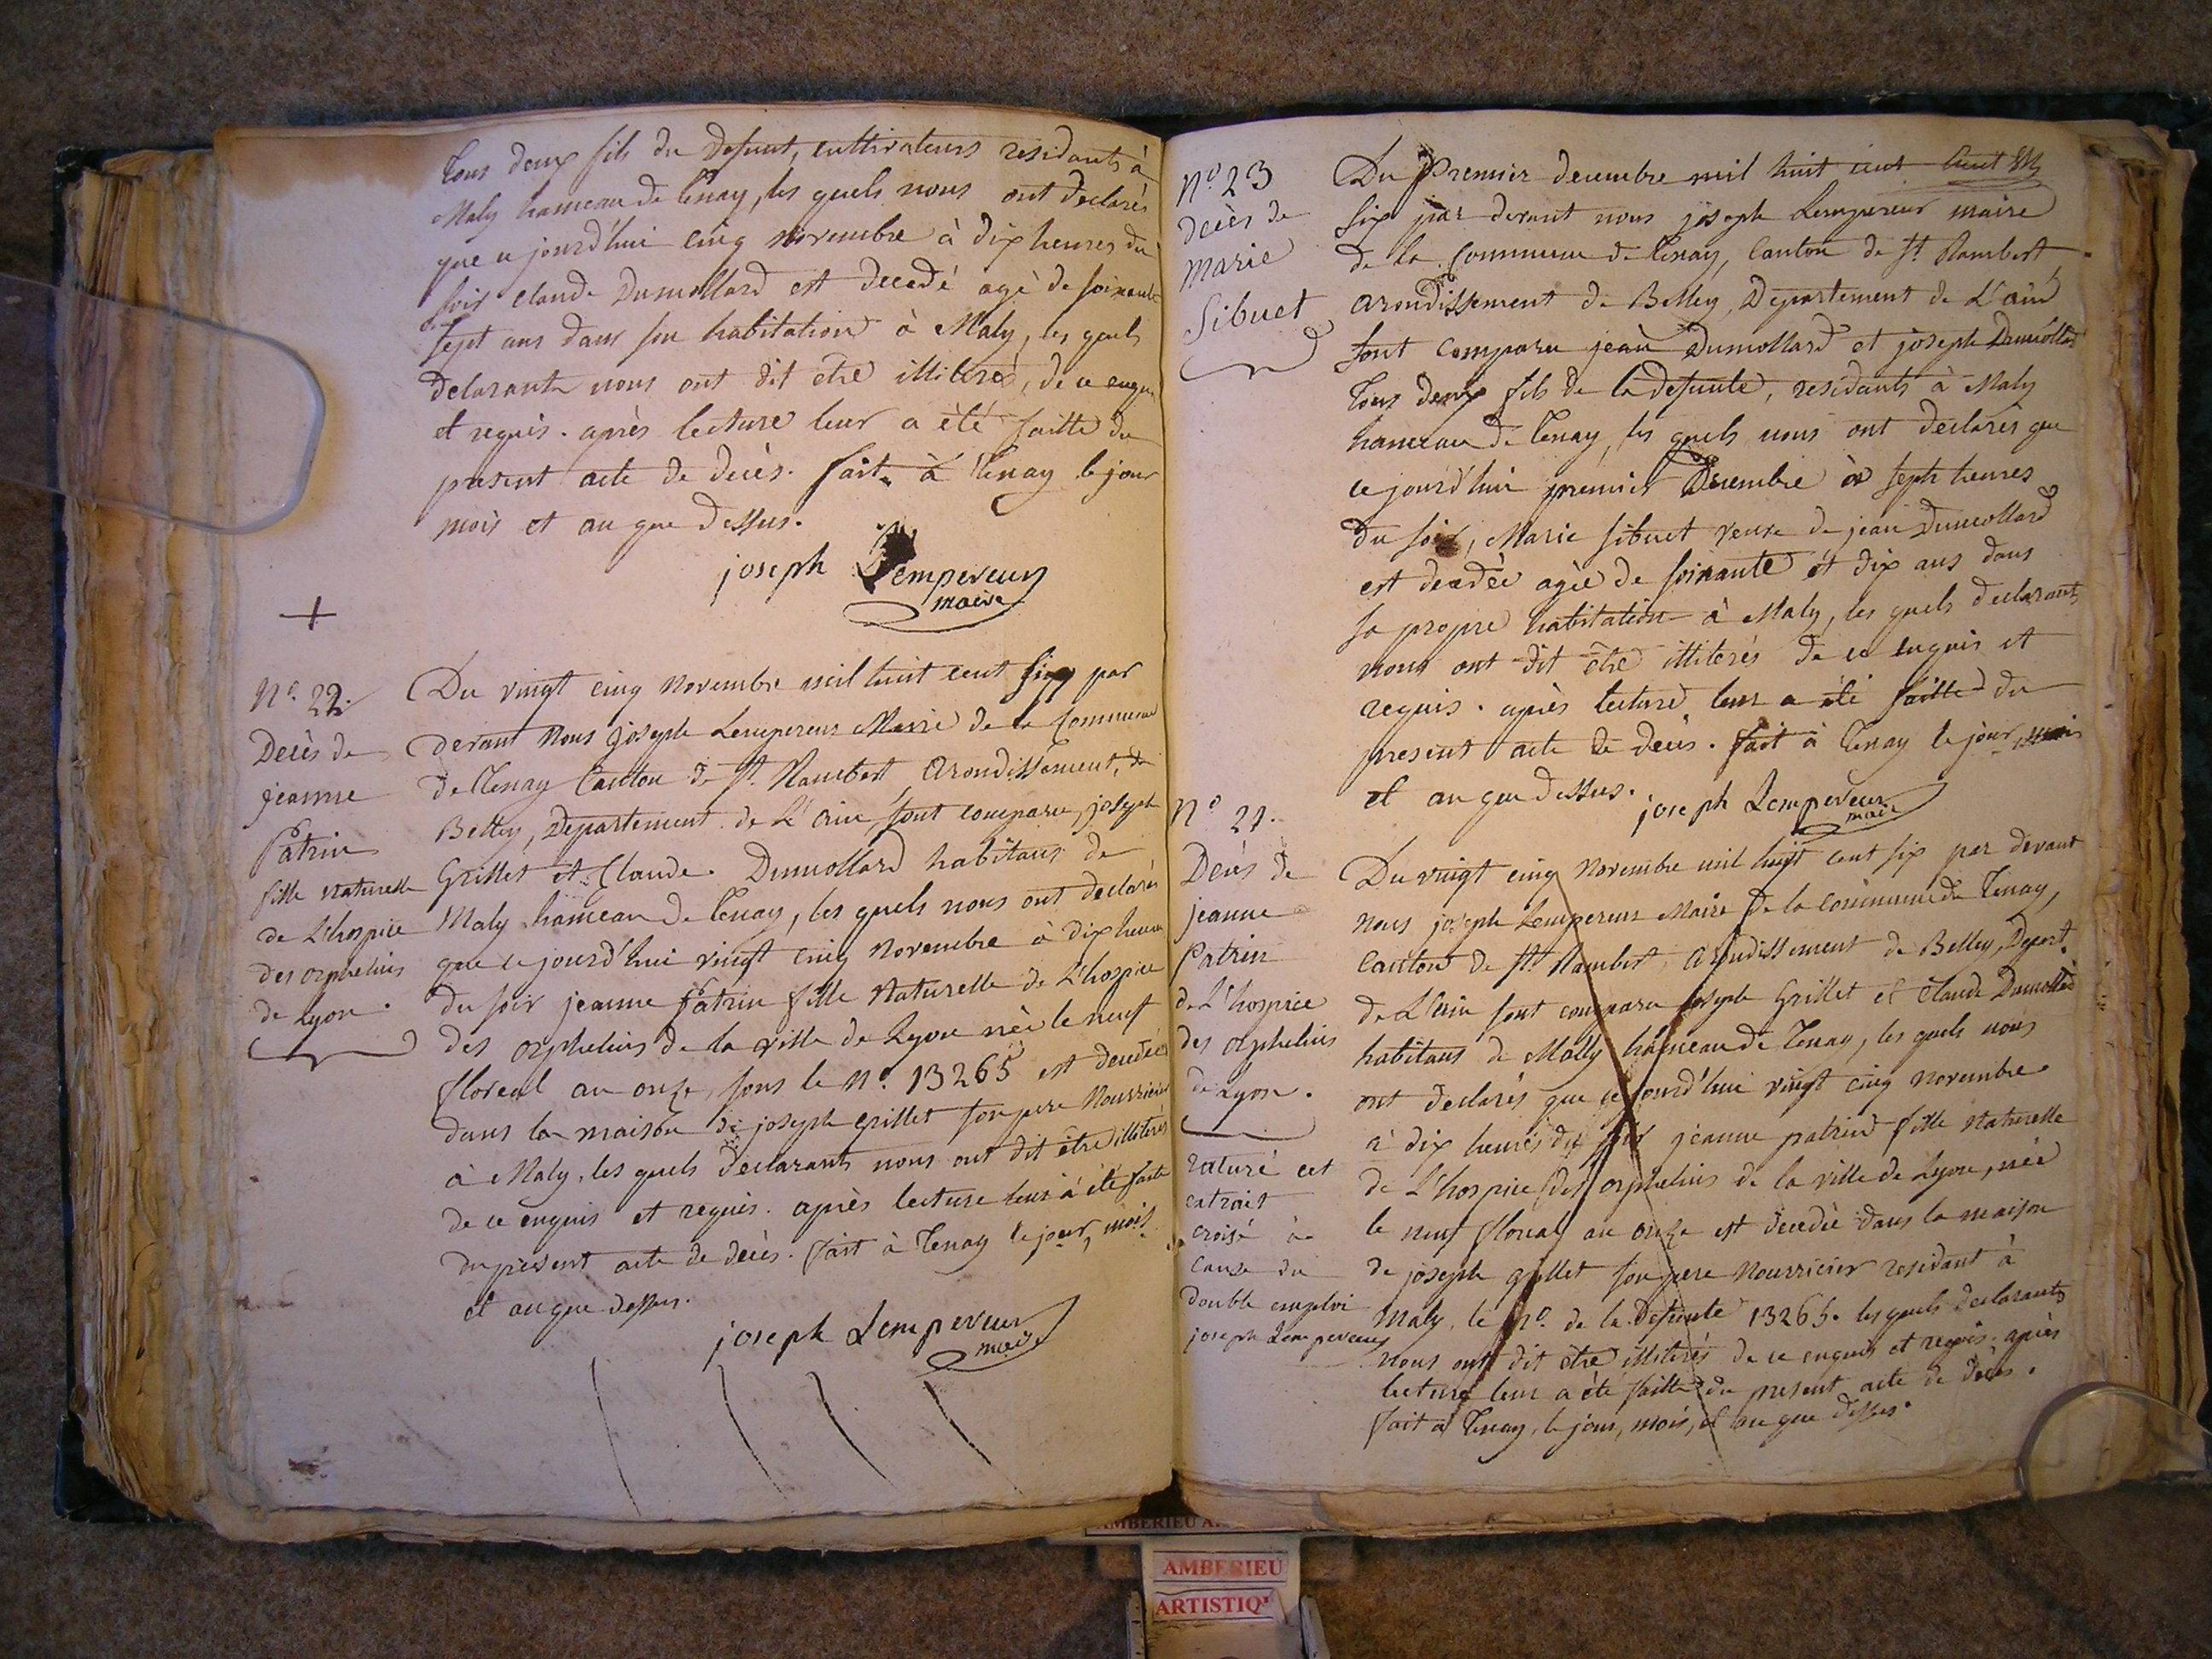 tous deux fils du defunt, cultivateurs residants à
Maly hameau de Tenay, les quels nous ont declarés
que ce jourd'hui cinq novembre à dix heures du
soir Claude Dumollard est decedé agé de soixante
sept ans dans son habitation à Maly, les quels
declarants nous ont dit être illiterés, de ce enquis
et requis. après lecture leur a été faitte du
present acte de decès. fait à Tenay le jour
mois et an que dessus.
joseph Lempereur
maire
N.o 22.
Decès de
jeanne
Patrin
fille naturelle
de L'hospice
des orphelins
de Lyon.
Du vingt cinq novembre mil huit cent six par
devant Nous Joseph Lempereur Maire de la Commune
de Tenay Canton de St. Rambert Arondissement, de
Belley, Departement de L'Ain, sont comparu, joseph
Grillet et Claude. Dumollard habitans de
Maly hameau de Tenay, les quels nous ont declarés
que ce jourd'hui vingt cinq novembre à dix heures
du soir jeanne Patrin fille Naturelle de L'hospice
des orphelins de la ville de Lyon née le neuf
floreal an onze, sous le N.o 13265 est decedée
dans la maison de joseph Grillet son pere Nourricier
à Maly, les quels declarants nous ont dit être illiterés
de ce enquis et requis. après lecture leur à été faite
du present acte de decès. fait à Tenay le jour, mois
et an que dessus.
joseph Lempereur
maire
N.o 23
decès de
marie
Sibuet
Du Premier decembre mil huit cent
six par devant nous joseph Lempereur maire
de la Commune de Tenay, Canton de St. Rambert
arondissement de Belley, Departement de L'ain
sont comparu jean Dumollard et joseph Dumollard
tous deux fils de la defunte, residants à Maly
hameau de Tenay, les quels nous ont declarés que
ce jourd'hui premier Decembre à sept heures
du soir, Marie Sibuet veuve de jean Dumollard
est decedée agée de soixante et dix ans dans
sa propre habitation à Maly, les quels declarants
nous ont dit être illiterés de ce enquis et
requis. après lecture leur a été faitte du
present acte de decès. fait à Tenay le jour, mois
et an que dessus.
joseph Lempereur
maire
N.o
Decès de
jeanne
Patrin
de L'hospice
des orphelins
de Lyon.
raturé cet
extrait
croisé à
cause du
double emploi
joseph Lempereur
Du vingt cinq Novembre mil huit cent six par devant
nous joseph Lempereur Maire de la Commune de Tenay,
Canton de St. Rambert Arondissement de Belley, Depart.
de L'Ain sont comparu joseph Grillet et Claude Dumollard
habitans de Mally hameau de Tenay, les quels nous
ont declarés que ce jourd'hui vingt cinq novembre
à dix heures du soir jeanne patrin fille naturelle
de L'hospice des orphelins de la ville de Lyon, née
le neuf floreal an onze est decedée dans la maison
de joseph grillet son pere Nourricier residant à
Maly, le N.o de la Defunte 13265. les quels declarants
nous ont dit être illiterés de ce enquis et requis. après
lecture leur a été faitte du present acte de decès.
fait à Tenay, le jour, mois, et an que dessus.
AMBERIEU
AMBERIEU
ARTISTIQ